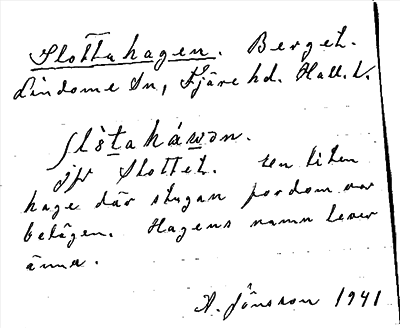 Slottahagen. Berget.
Lindome Sn, Fjäre hd. Hall. l.
jfr Slottet. en liten
hage där stugan fordom var
belägen. Hagens namn lever
ännu.
A. Jönsson 1941